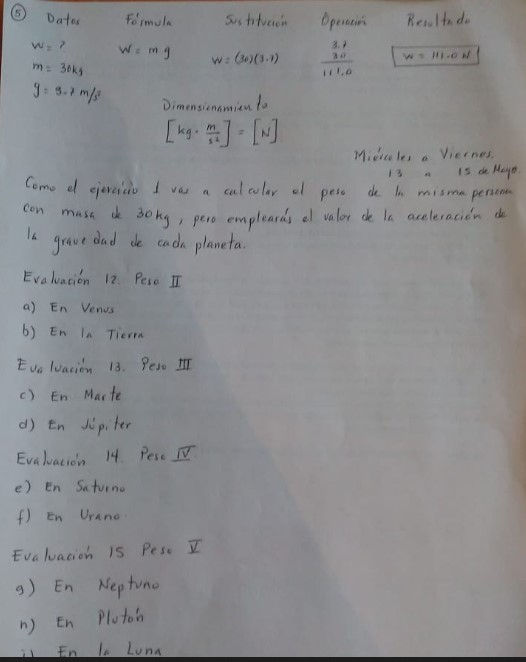 5 Datos Fórmula Sustitución Operación Resultado
w = ? W = m g w = (30)(3.7) 3.7 w = 111.0 N
m = 30kg 30
g = 3.7 m/s² 111.0
Dimensionamiento
[kg · m/s²] = [N]
Miércoles a Viernes.
13 a 15 de Mayo.
Como el ejercicio 1 vas a calcular el peso de la misma persona
con masa de 30kg, pero emplearás el valor de la aceleración de
la gravedad de cada planeta.
Evaluación 12. Peso II
a) En Venus
b) En la Tierra
Evaluación 13. Peso III
c) En Marte
d) En Júpiter
Evaluación 14. Peso IV.
e) En Saturno
f) En Urano.
Evaluación 15 Peso V
g) En Neptuno
h) En Plutón
i) En la Luna